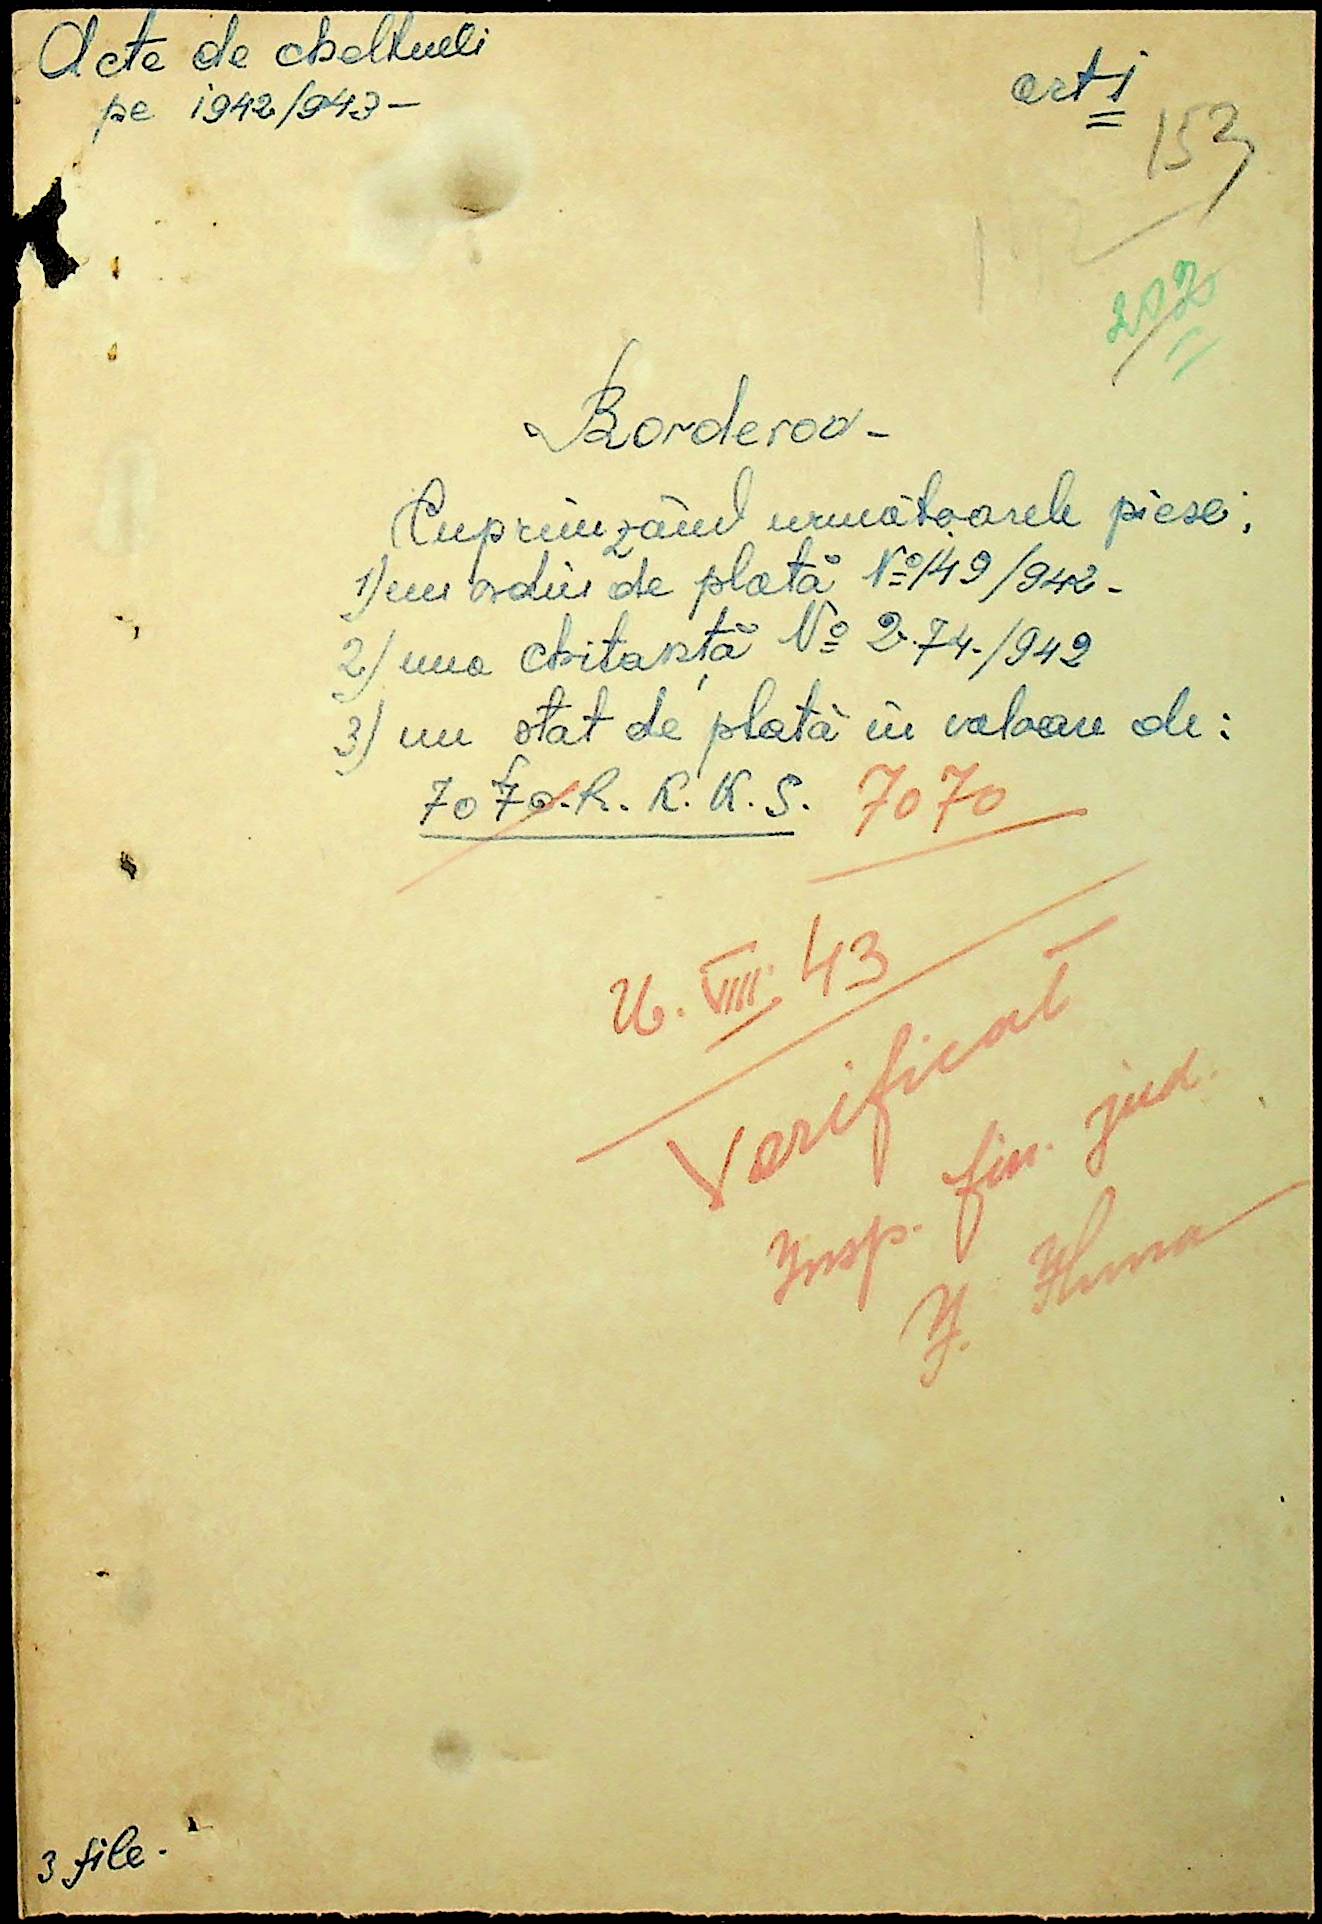 Acte de cheltueli
pe 1942/943 -
art 1
153
Borderou -
Cuprinzând următoarele piese:
1) un ordin de plată № 149/942 -
2) una chitanță № 274./942
3) un stat de plată în valoare de:
7070.R.K.K.S. 7070
VIII 43
Verificat
Insp. fin. jud.
3 file.